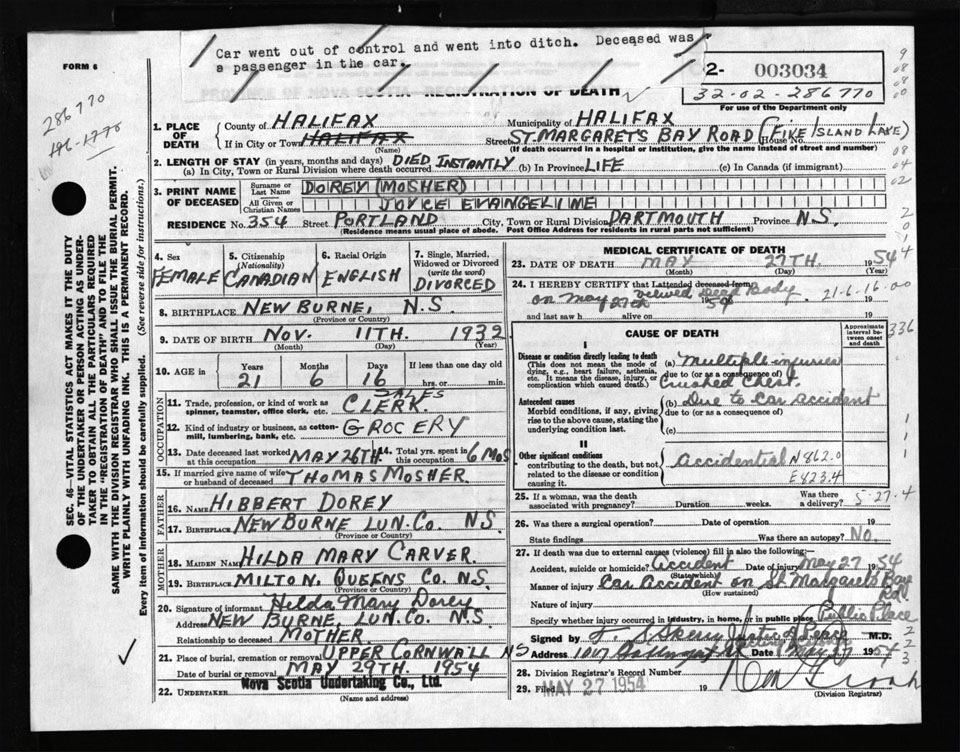 Car went out of control and went into ditch. Deceased was
a passenger in the car.
FORM 6
286770
2- 003034
PROVINCE OF NOVA SCOTIA—REGISTRATION OF DEATH
32-02-286770
For use of the Department only
1. PLACE OF DEATH
County of HALIFAX Municipality of HALIFAX
If in City or Town HALIFAX (Name) Street ST. MARGARETS BAY ROAD (FIKE ISLAND LAKE) House No.
(If death occurred in a hospital or institution, give the name instead of street and number)
2. LENGTH OF STAY (in years, months and days) DIED INSTANTLY
(a) In City, Town or Rural Division where death occurred (b) In Province LIFE (c) In Canada (if immigrant)
3. PRINT NAME OF DECEASED
Surname or Last Name DOREY (MOSHER)
All Given or Christian Names JOYCE EVANGELINE
RESIDENCE No. 354 Street PORTLAND City, Town or Rural Division DARTMOUTH Province N.S.
(Residence means usual place of abode. Post Office Address for residents in rural parts not sufficient)
4. Sex FEMALE
5. Citizenship (Nationality) CANADIAN
6. Racial Origin ENGLISH
7. Single, Married, Widowed or Divorced (write the word) DIVORCED
8. BIRTHPLACE NEW BURNE, N.S.
(Province or Country)
9. DATE OF BIRTH NOV. 11TH. 1932
(Month) (Day) (Year)
10. AGE in Years 21 Months 6 Days 16 If less than one day old hrs. or min.
OCCUPATION
11. Trade, profession, or kind of work as spinner, teamster, office clerk, etc. SALES CLERK.
12. Kind of industry or business, as cotton-mill, lumbering, bank, etc. GROCERY
13. Date deceased last worked at this occupation MAY 26TH 14. Total yrs. spent in this occupation 6 MOS
15. If married give name of wife or husband of deceased THOMAS MOSHER.
FATHER
16. NAME HIBBERT DOREY
17. BIRTHPLACE NEW BURNE LUN. CO. N.S.
(Province or Country)
MOTHER
18. MAIDEN NAME HILDA MARY CARVER.
19. BIRTHPLACE MILTON, QUEENS CO. N.S.
(Province or Country)
20. Signature of informant Hilda Mary Dorey
Address NEW BURNE, LUN. CO. N.S.
Relationship to deceased MOTHER
21. Place of burial, cremation or removal UPPER CORNWALL NS
Date of burial or removal MAY 29TH. 1954
22. UNDERTAKER Nova Scotia Undertaking Co., Ltd.
(Name and address)
MEDICAL CERTIFICATE OF DEATH
23. DATE OF DEATH MAY 27TH. 1954
(Month) (Day) (Year)
24. I HEREBY CERTIFY that I attended deceased from
on May 27th viewed Dead Body 1954 21-6-16-00
and last saw h alive on 19
CAUSE OF DEATH
Approximate interval between onset and death
336
I
Disease or condition directly leading to death (This does not mean the mode of dying, e.g., heart failure, asthenia, etc. It means the disease, injury, or complication which caused death.)
(a) Multiple injuries
due to (or as a consequence of)
Crushed Chest.
Antecedent causes
Morbid conditions, if any, giving rise to the above cause, stating the underlying condition last.
(b) Due to Car accident
due to (or as a consequence of)
(c)
II
Other significant conditions
contributing to the death, but not related to the disease or condition causing it.
Accidential N862.0
E823.4
25. If a woman, was the death associated with pregnancy? Duration weeks. Was there a delivery?
5-27-4
26. Was there a surgical operation? Date of operation 19
State findings Was there an autopsy? No.
27. If death was due to external causes (violence) fill in also the following:
Accident, suicide or homicide? Accident (State which) Date of injury May 27 1954
Manner of injury Car Accident on St Margarets Bay Rd.
(How sustained)
Nature of injury
Specify whether injury occurred in industry, in home, or in public place Public Place
Signed by Justice of Peace M.D.
Address Date May 27 1954
28. Division Registrar's Record Number
29. Filed MAY 27 1954 19
(Division Registrar)
SEC. 46—VITAL STATISTICS ACT MAKES IT THE DUTY
OF THE UNDERTAKER OR PERSON ACTING AS UNDER-
TAKER TO OBTAIN ALL THE PARTICULARS REQUIRED
IN THE "REGISTRATION OF DEATH" AND TO FILE THE
SAME WITH THE DIVISION REGISTRAR WHO SHALL ISSUE THE BURIAL PERMIT.
WRITE PLAINLY WITH UNFADING INK. THIS IS A PERMANENT RECORD.
Every item of information should be carefully supplied. (See reverse side for instructions.)